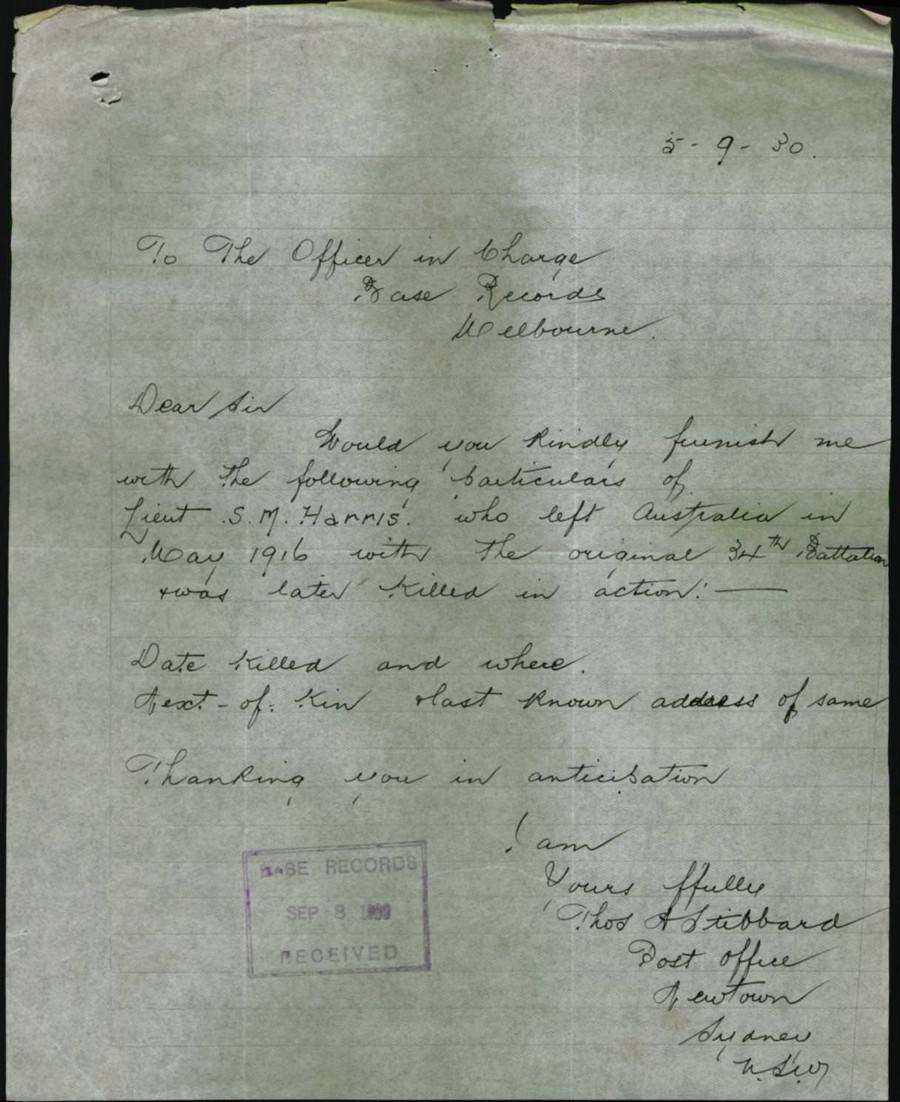 5 - 9 - 30.
To The Officer in Charge
Base Records
Melbourne.
Dear Sir
Would you kindly furnish me
with the following particulars of
Lieut S. M. Harris. who left Australia in
May 1916 with the original 34th Battalion
& was later killed in action: —
Date killed and where.
Next - of - Kin & last known address of same
Thanking you in anticipation
I am
Yours ffully
Thos A Stibbard
Post office
Newtown
Sydney
N.S.W
BASE RECORDS
SEP 8 1930
RECEIVED